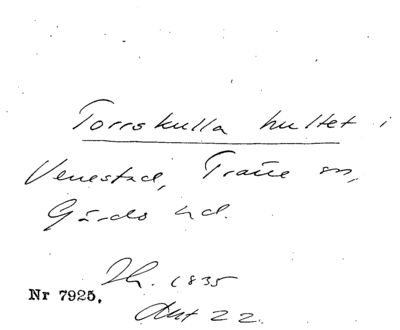 Torrskulla hultet i
Venestad, Träne sn,
Gärds hd.
1835
Nr 7925.
22.